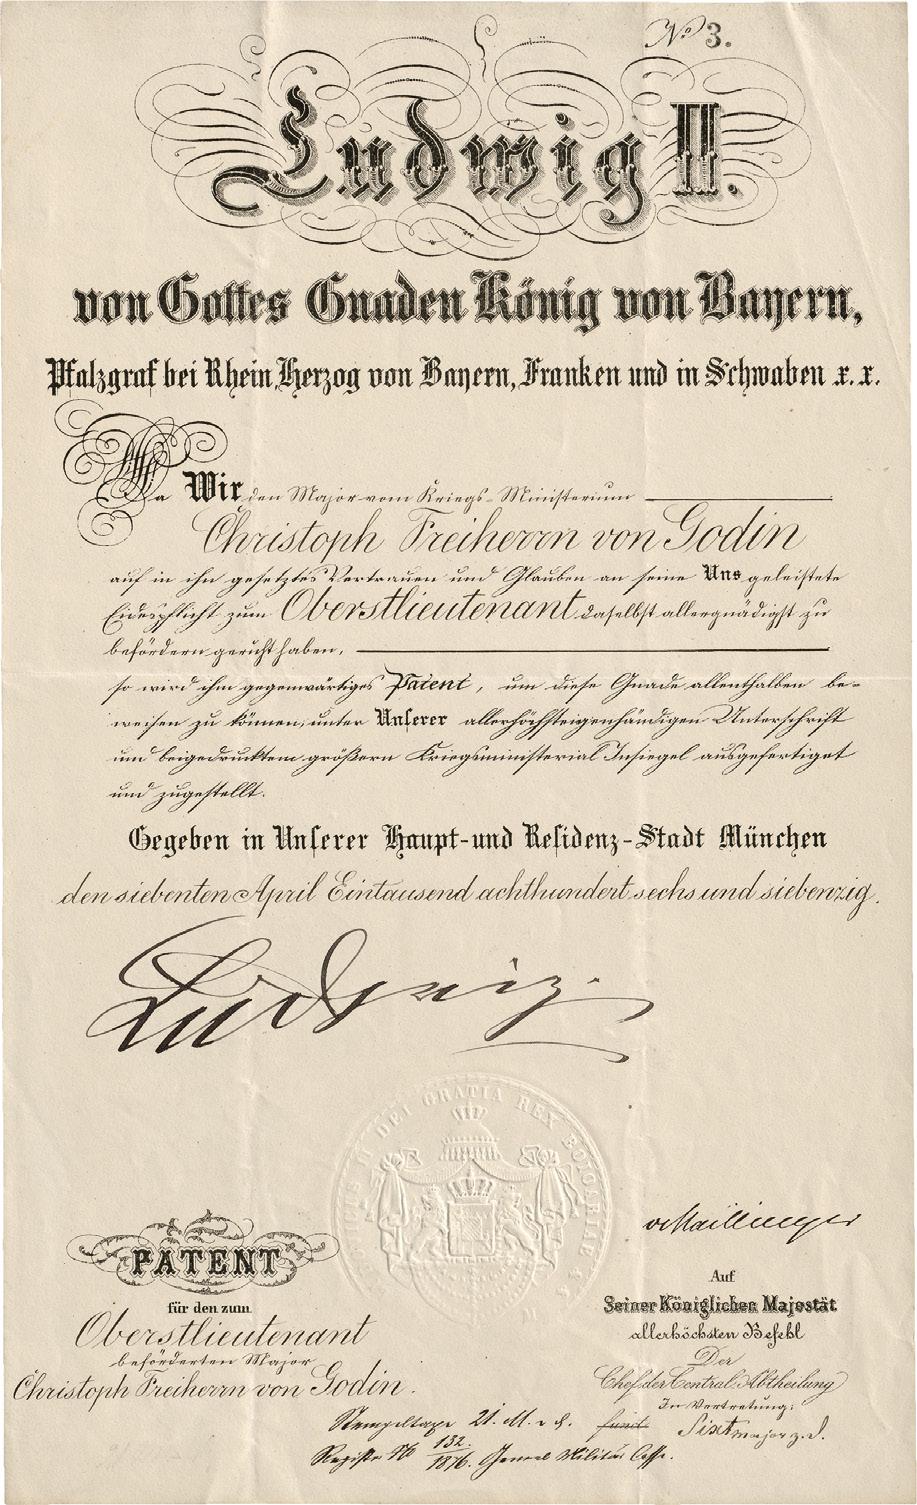 No 3.
Ludwig II.
von Gottes Gnaden König von Bayern,
Pfalzgraf bei Rhein, Herzog von Bayern, Franken und in Schwaben x. x.
Da Wir den Major vom Kriegs-Ministerium
Christoph Freiherrn von Godin
auf in ihn gesetztes Vertrauen und Glauben an seine Uns geleistete
Eidespflicht zum Oberstlieutenant daselbst allergnädigst zu
befördern geruht haben,
so wird ihm gegenwärtiges Patent, um diese Gnade allenthalben be-
weisen zu können, unter Unserer allerhöchsteigenhändigen Unterschrift
und beigedrucktem größern Kriegsministerial Insiegel ausgefertiget
und zugestellt.
Gegeben in Unserer Haupt- und Residenz-Stadt München
den siebenten April Eintausend achthundert sechs und siebenzig.
Ludwig
II DEI GRATIA REX BOIOARIAE
v Maillinger
PATENT
für den zum
Oberstlieutenant
beförderten Major
Christoph Freiherrn von Godin.
Auf
Seiner Königlichen Majestät
allerhöchsten Befehl
Der
Chef der Central-Abtheilung
In Vertretung:
Sixt Major z. D.
Stempeltaxe 21. M.
Register No 132/1876. General Militär Casse.